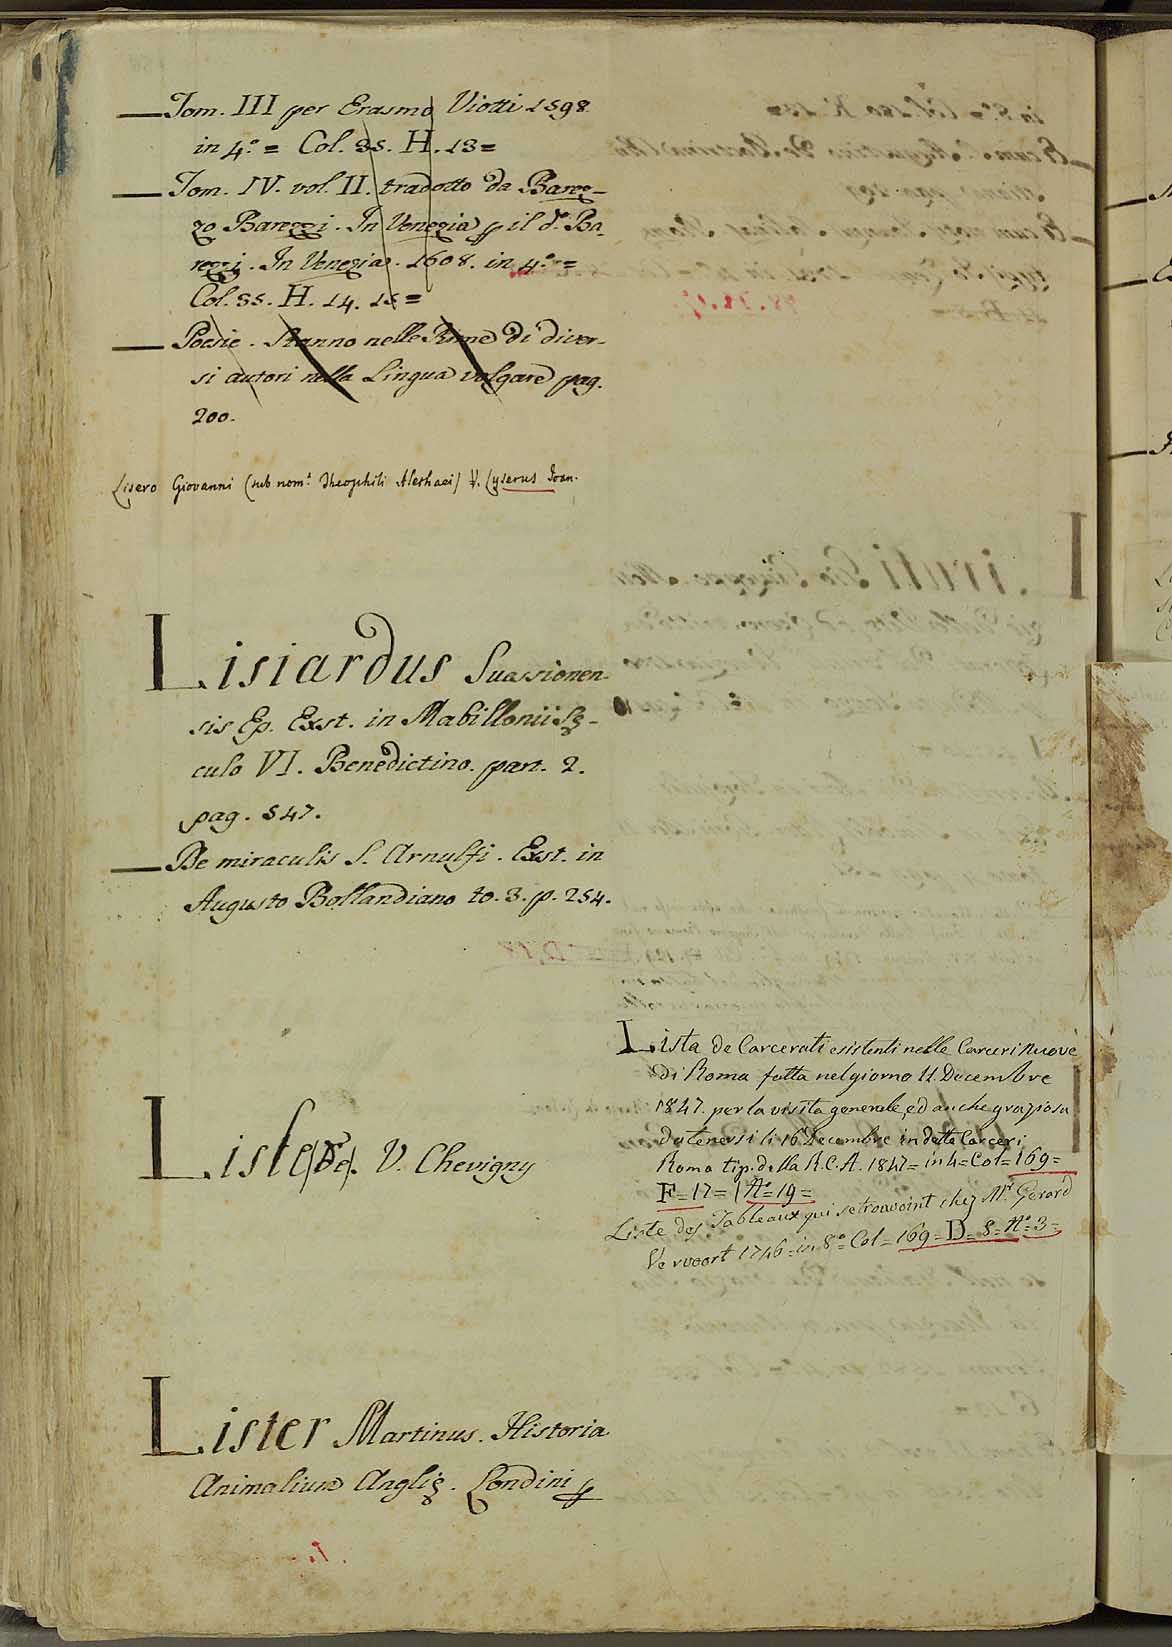 — Tom. III per Erasmo Viotti 1598
in 4.º = Col. 35. H. 13 =
— Tom. IV. vol. II. tradotto da Barez-
zo Barezzi. In Venezia p il d.º Ba-
rezzi. In Venezia. 1608. in 4.º =
Col. 35. H. 14. 15 =
— Poesie. Stanno nelle Rime di diver-
si autori nella Lingua volgare pag.
200.
Lisero Giovanni (sub nom.e Theophili Alethaei) V. Lyserus Ioan.
Lisiardus Suassionen-
sis Ep. Exst. in Mabillonii Sę-
culo VI. Benedictino. part. 2.
pag. 547.
— De miraculis S. Arnulfi. Exst. in
Augusto Bollandiano to. 3. p. 254.
Liste (De). V. Chevigny
Lister Martinus. Historia
Animalium Anglię. Londini p
Lista de Carcerati esistenti nelle Carceri Nuove
di Roma fatta nel giorno 11. Decembre
1847. per la visita generale, ed anche graziosa
da tenersi li 16 Decembre in dette Carceri
Roma tip. della R. C. A. 1847 = in 4 = Col = 169 =
F = 17 = Nº = 19 =
Liste des Tableaux qui se trouvoint chez Mr. Gerard
Vervoort 1746 = in 8º = Col = 169 = D = 8 = Nº = 3 =